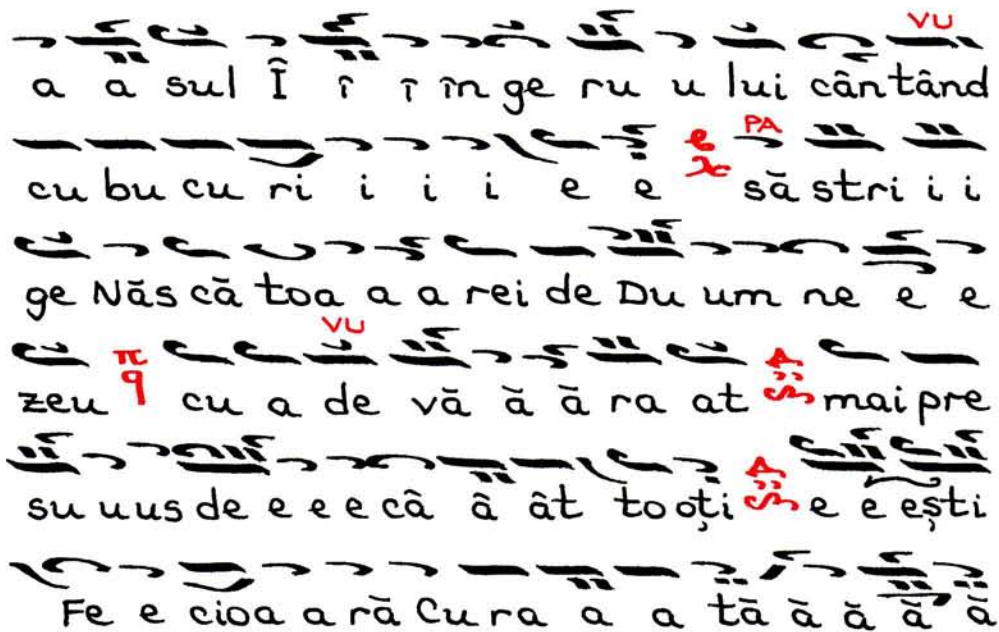 VU
a a sul Î î î în ge ru u lui cântând
PA
cu bu cu ri i i i i e e să stri i i
ge Născă toa a a rei de Du um ne e e
VU
zeu π q cu a de vă ă ă ra at mai pre
su u us de e e e câ â ât to oți e e ești
Fe e cioa a ră Cu ra a a tă ă ă ă ă